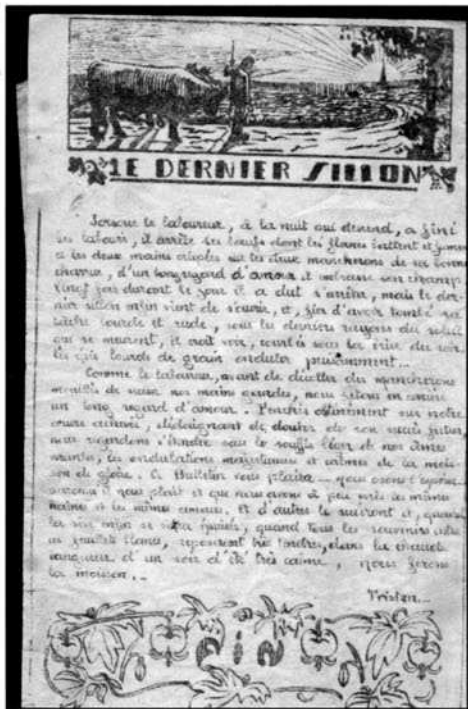 LE DERNIER SILLON
Lorsque le laboureur, à la nuit qui descend, a fini
ses labours, il arrête ses bœufs dont les flancs battent et fument
et les deux mains crispées sur les deux mancherons de sa bonne
charrue, d'un long regard d'amour il embrasse son champ.
Vingt fois durant le jour il a dut s'arrêter, mais le der-
nier sillon enfin vient de s'ouvrir, et, fier d'avoir tombé sa
tâche lourde et rude, sous les derniers rayons du soleil
qui se meurent, il croit voir, courbés sous la brise du soir,
les épis lourds de grain onduler puissamment...
Comme le laboureur, avant de décoller des mancherons
de nos mains gourdes, nous jetons en arrière
un long regard d'amour. Penchés obstinément sur notre
œuvre dédaignant de douter de son succès futur,
nous regardons s'étendre sous le souffle léger de nos âmes
les ondulations majestueuses et calmes de la mois-
son de gloire. Ce Bulletin vous plaira — nous osons l'espérer
il nous plait et que nous avons à peu près les mêmes
haines et les mêmes amours. Et d'autres le suivront et, quand
la série sera épuisée, quand tous les souvenirs
feuillets blancs, reposeront très tendres, dans la
d'un soir d'été très calme, nous ferons
la moisson...
Tristan...
FIN